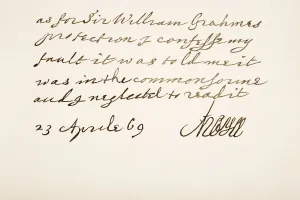 as for Sir William Grahmes
protection I confesse my
fault it was told me it
was in the common forme
and I neglected to read it
23 Aprile 69